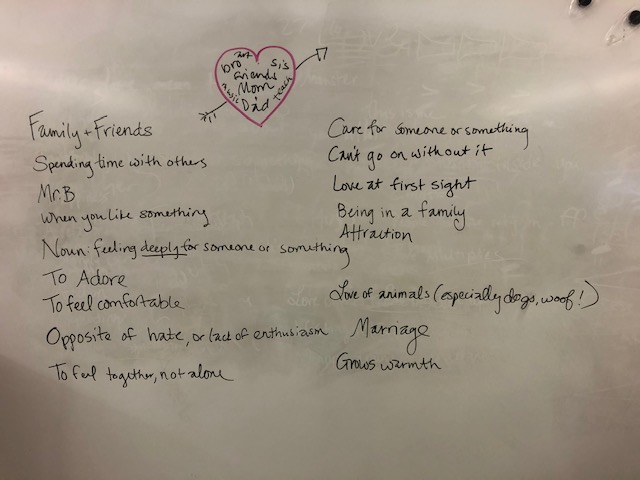 art
bro sis
friends
music Mom teach
Dad
Family + Friends
Spending time with others
Mr. B
when you like something
Noun: feeling deeply for someone or something
To Adore
To feel comfortable
Opposite of hate, or lack of enthusiasm
To feel together, not alone
Care for someone or something
Can't go on without it
Love at first sight
Being in a family
Attraction
Love of animals (especially dogs, woof!)
Marriage
Grows warmth